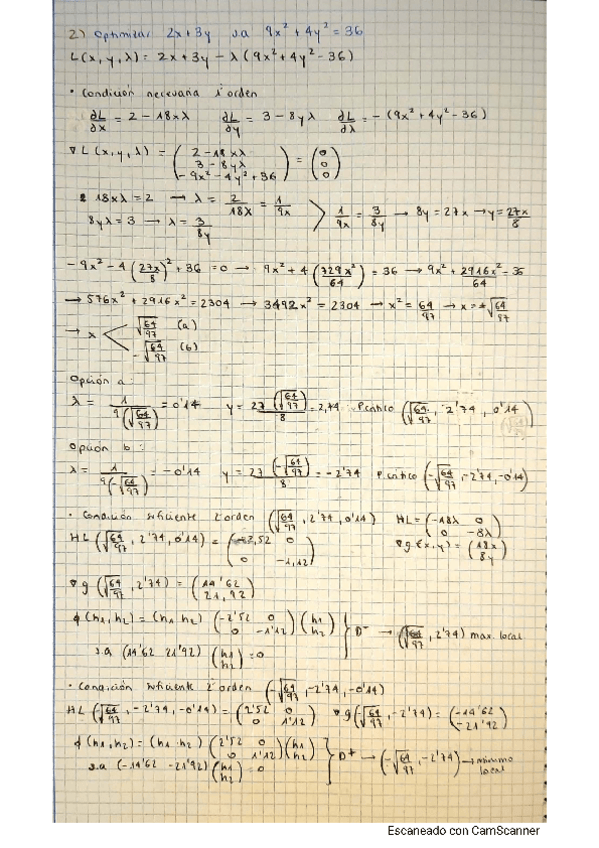 2) Optimizar 2x+3y s.a 9x²+4y²=36
L(x,y,λ) = 2x+3y-λ(9x²+4y²-36)
• Condición necesaria 1ºorden
∂L/∂x = 2-18xλ ∂L/∂y = 3-8yλ ∂L/∂λ = -(9x²+4y²-36)
∇L(x,y,λ) = (2-18xλ, 3-8yλ, -9x²-4y²+36) = (0, 0, 0)
18xλ=2 → λ = 2/18x = 1/9x
8yλ=3 → λ = 3/8y > 1/9x = 3/8y → 8y=27x → y=27x/8
-9x²-4(27x/8)²+36=0 → 9x²+4(729x²/64)=36 → 9x²+2916x²/64=36
→ 576x²+2916x²=2304 → 3492x²=2304 → x²=64/97 → x=±√64/97
→ x < √64/97 (a)
-√64/97 (b)
Opción a:
λ = 1/9(√64/97) = 0'14 y = 27(√64/97)/8 = 2,74 P.crítico (√64/97, 2'74, 0'14)
Opción b:
λ = 1/9(-√64/97) = -0'14 y = 27(-√64/97)/8 = -2'74 P.crítico (-√64/97, -2'74, -0'14)
• Condición suficiente 2ºorden (√64/97, 2'74, 0'14) HL = (-18λ 0, 0 -8λ)
HL(√64/97, 2'74, 0'14) = (-2,52 0, 0 -1,12) ∇g(x,y) = (18x, 8y)
∇g(√64/97, 2'74) = (14'62, 21,92)
ϕ(h1,h2) = (h1 h2) (-2'52 0, 0 -1'12) (h1, h2) } D⁻ → (√64/97, 2'74) max. local
s.a (14'62 21'92) (h1, h2) = 0
• Condición suficiente 2ºorden (-√64/97, -2'74, -0'14)
HL(-√64/97, -2'74, -0'14) = (2'52 0, 0 1'12) ∇g(-√64/97, -2'74) = (-14'62, -21'92)
ϕ(h1,h2) = (h1 h2) (2'52 0, 0 1'12) (h1, h2) } D⁺ → (-√64/97, -2'74) → mínimo local
s.a (-14'62 -21'92) (h1, h2) = 0
Escaneado con CamScanner